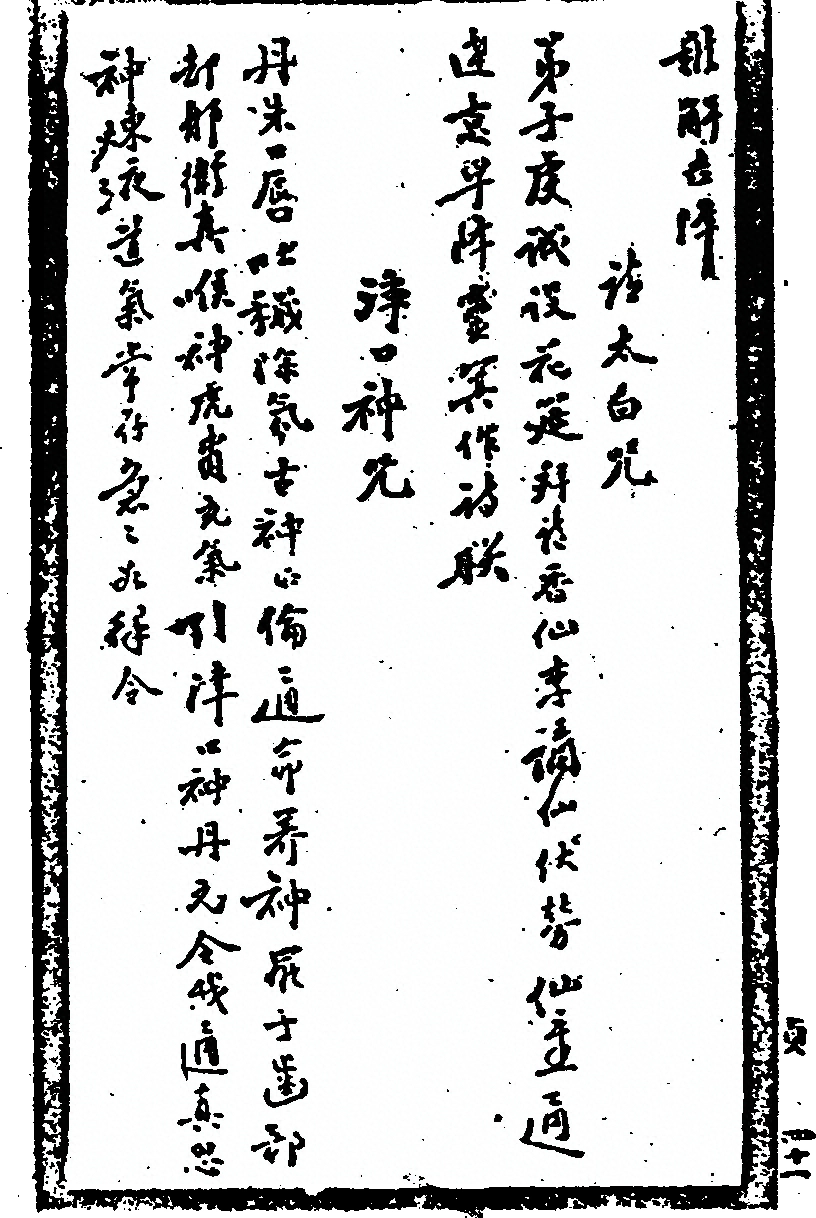 解去降
請太白咒
弟子虔誠設花筵拜請香仙李謫仙伏勞仙主通
達意早降靈箕作詩联
淨口神咒
丹朱口唇吐穢除氛舌神口倫通命养神罗千齒邪
却邪衛真喉神虎賁充氣引津口神丹元令我通真思
神煉液道氣常存急々如律令
頁 四十一